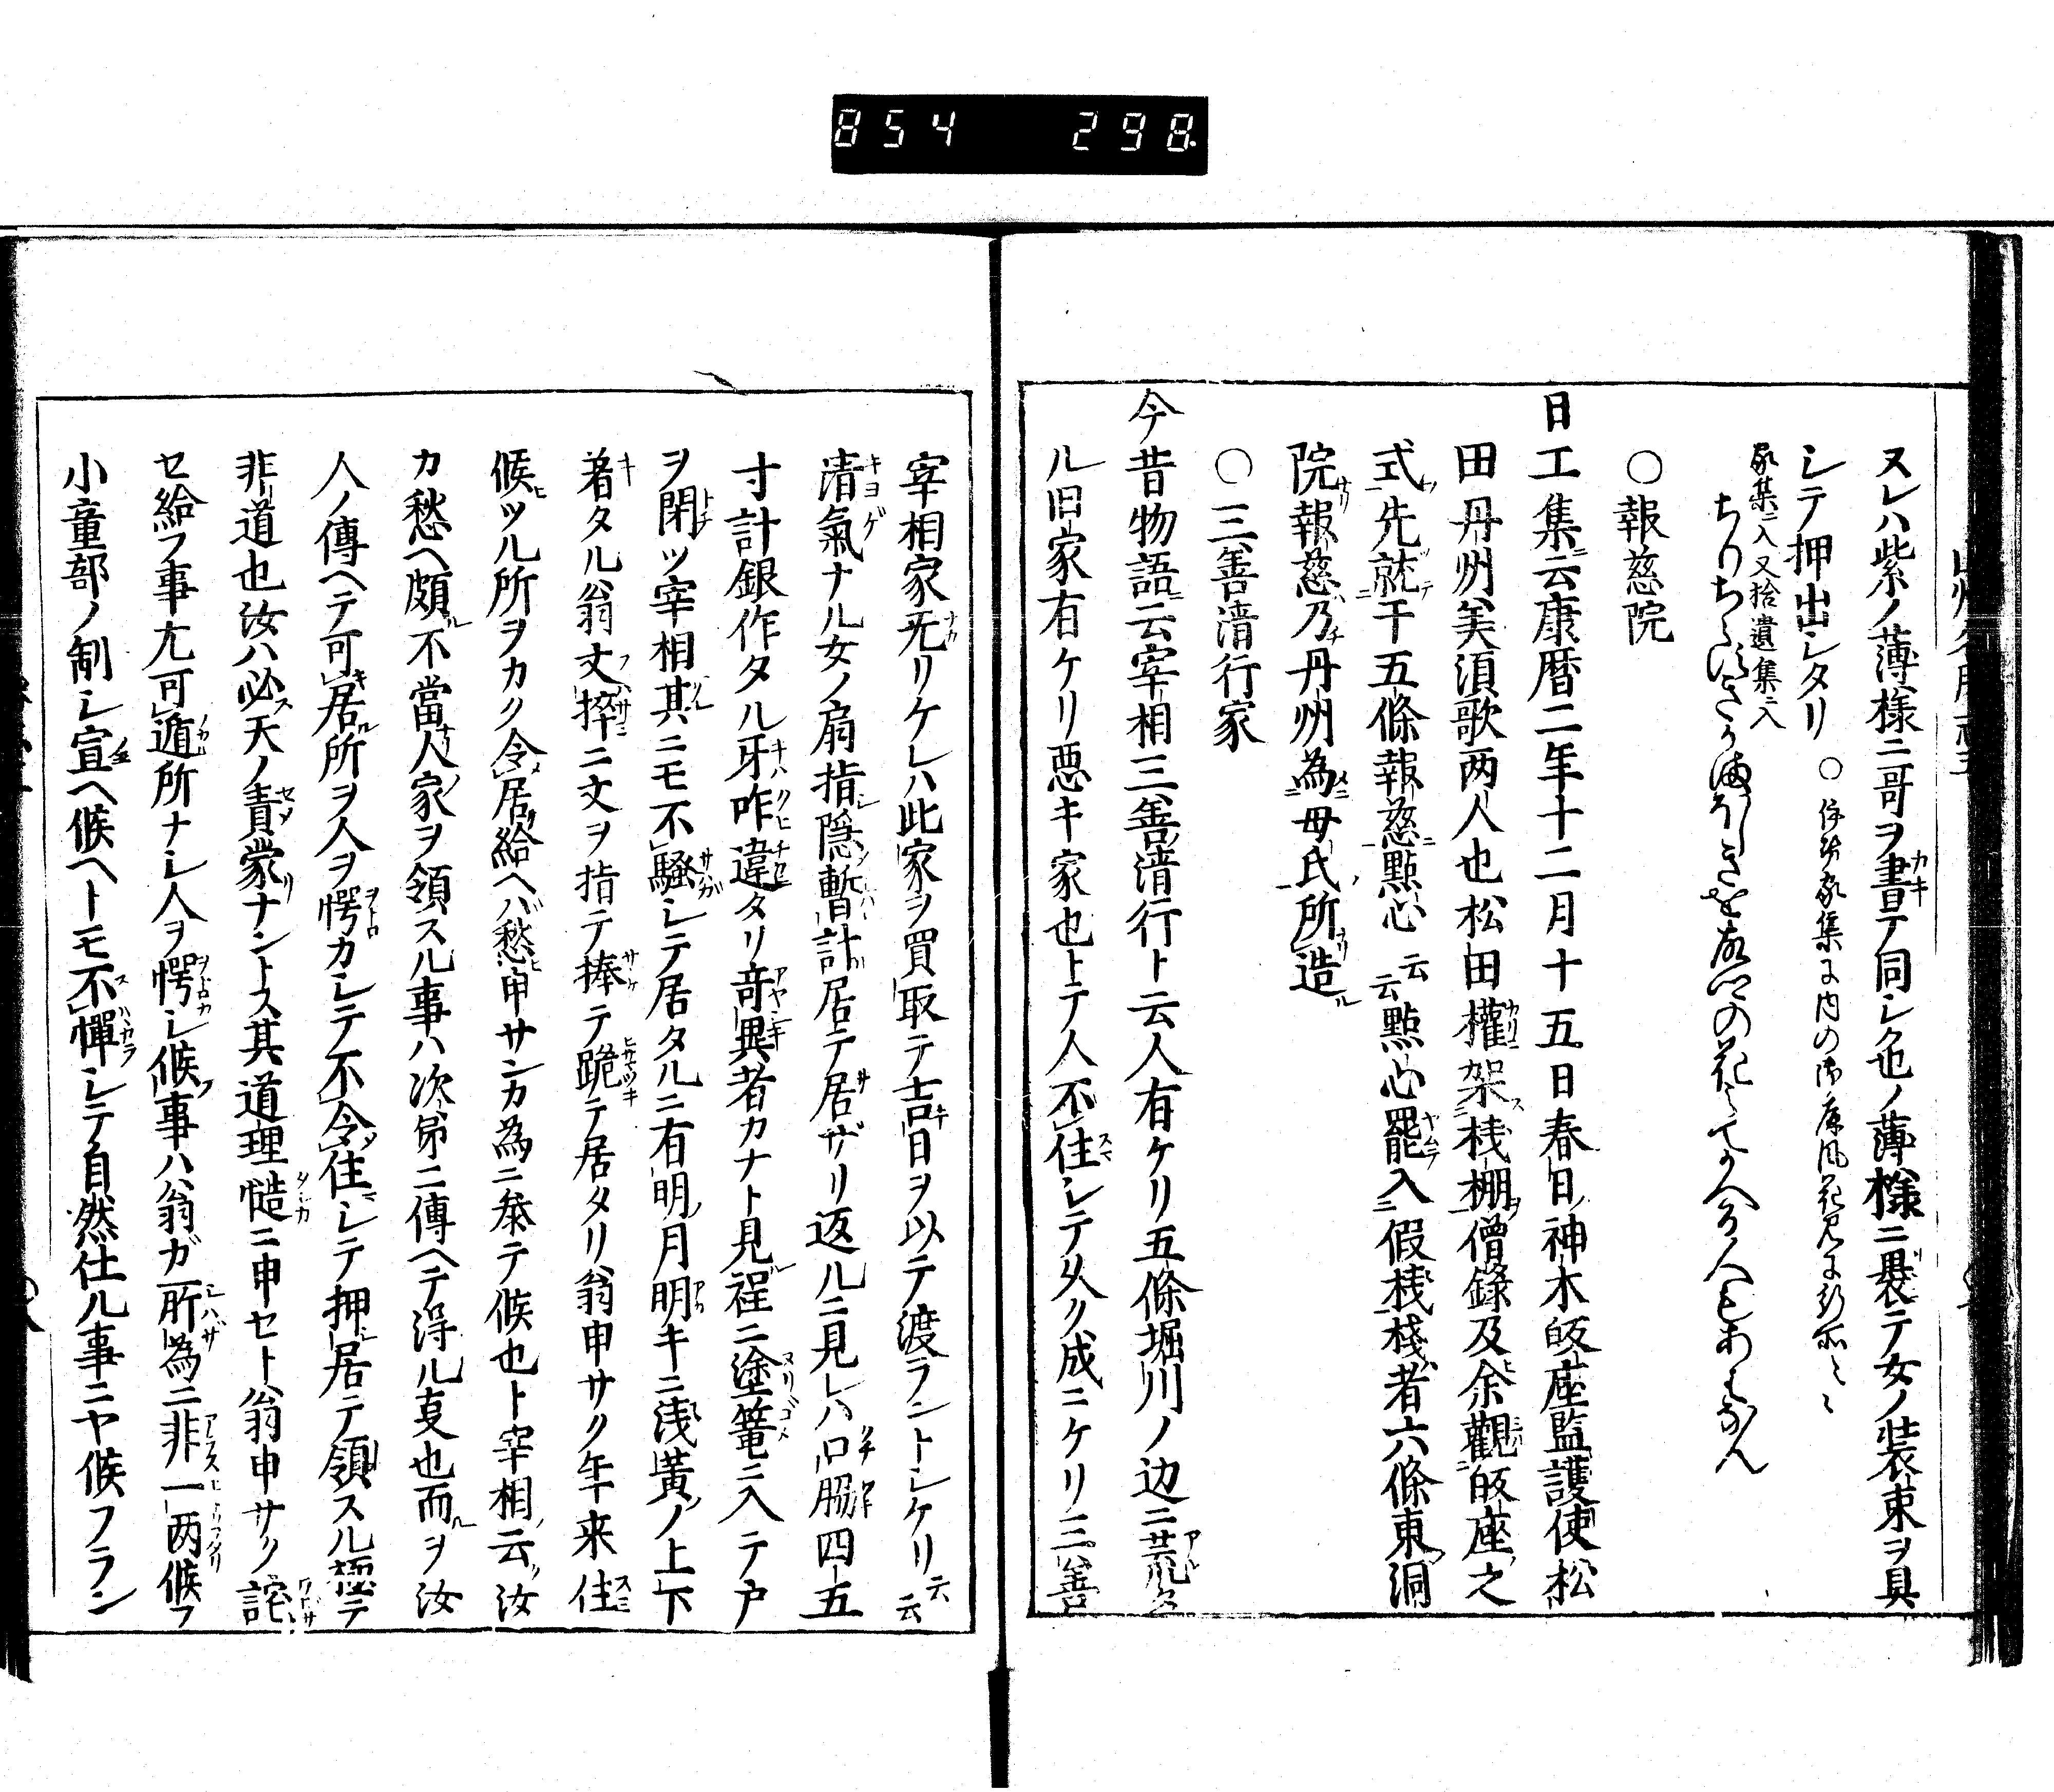 854 298
ヌレハ紫ノ薄様ニ哥ヲ書テ同シク色ノ薄様ニ裹テ女ノ装束ヲ具
シテ押出シタリ ○伊勢家集に内の御屏風花見に
家集ニ入又拾遺集ニ入
ちりちらすきかまほしきを故郷の花見てかへる人もあはなん
○報慈院
日工集ニ云康暦二年十二月十五日春日ノ神木皈座監護使松
田丹州美須歌両人也松田權架桟棚僧錄及余觀皈座之
式先就干五條報慈點心云云點心罷入假桟棧者六條東洞
院報慈乃丹州為母氏所造
○三善清行家
今昔物語ニ云宰相三善清行ト云人有ケリ五條堀川ノ辺ニ荒タ
ル旧家有ケリ悪キ家也トテ人不住シテ久ク成ニケリ三善
宰相家旡リケレハ此家ヲ買取テ吉日ヲ以テ渡ラントシケリ云云
清氣ナル女ノ扇指隠暫計居テ居ザリ返ルニ見レハ口脇四五
寸計銀作タル牙咋違タリ竒異者カナト見程ニ塗篭ニ入テ户
ヲ閇ツ宰相其ニモ不騒シテ居タルニ有明月明キニ浅黄ノ上下
着タル翁文捽ニ文ヲ指テ捧テ跪テ居タリ翁申サク年来住
候ツル所ヲカク令居給ヘバ愁申サンカ為ニ叅テ候也ト宰相云汝
カ愁ヘ頗不當人家ヲ領スル事ハ次第ニ傳ヘテ淂ル叓也而ヲ汝
人ノ傳ヘテ可居所ヲ人ヲ愕カシテ不令住シテ押居テ領スル極テ
非道也汝ハ必天ノ責蒙ナントス其道理慥ニ申セト翁申サク詫
セ給フ事尤可遁所ナシ人ヲ愕シ候事ハ翁ガ所為ニ非一両候フ
小童部ノ制シ宣ヘ候ヘトモ不憚シテ自然仕ル事ニヤ候フラン